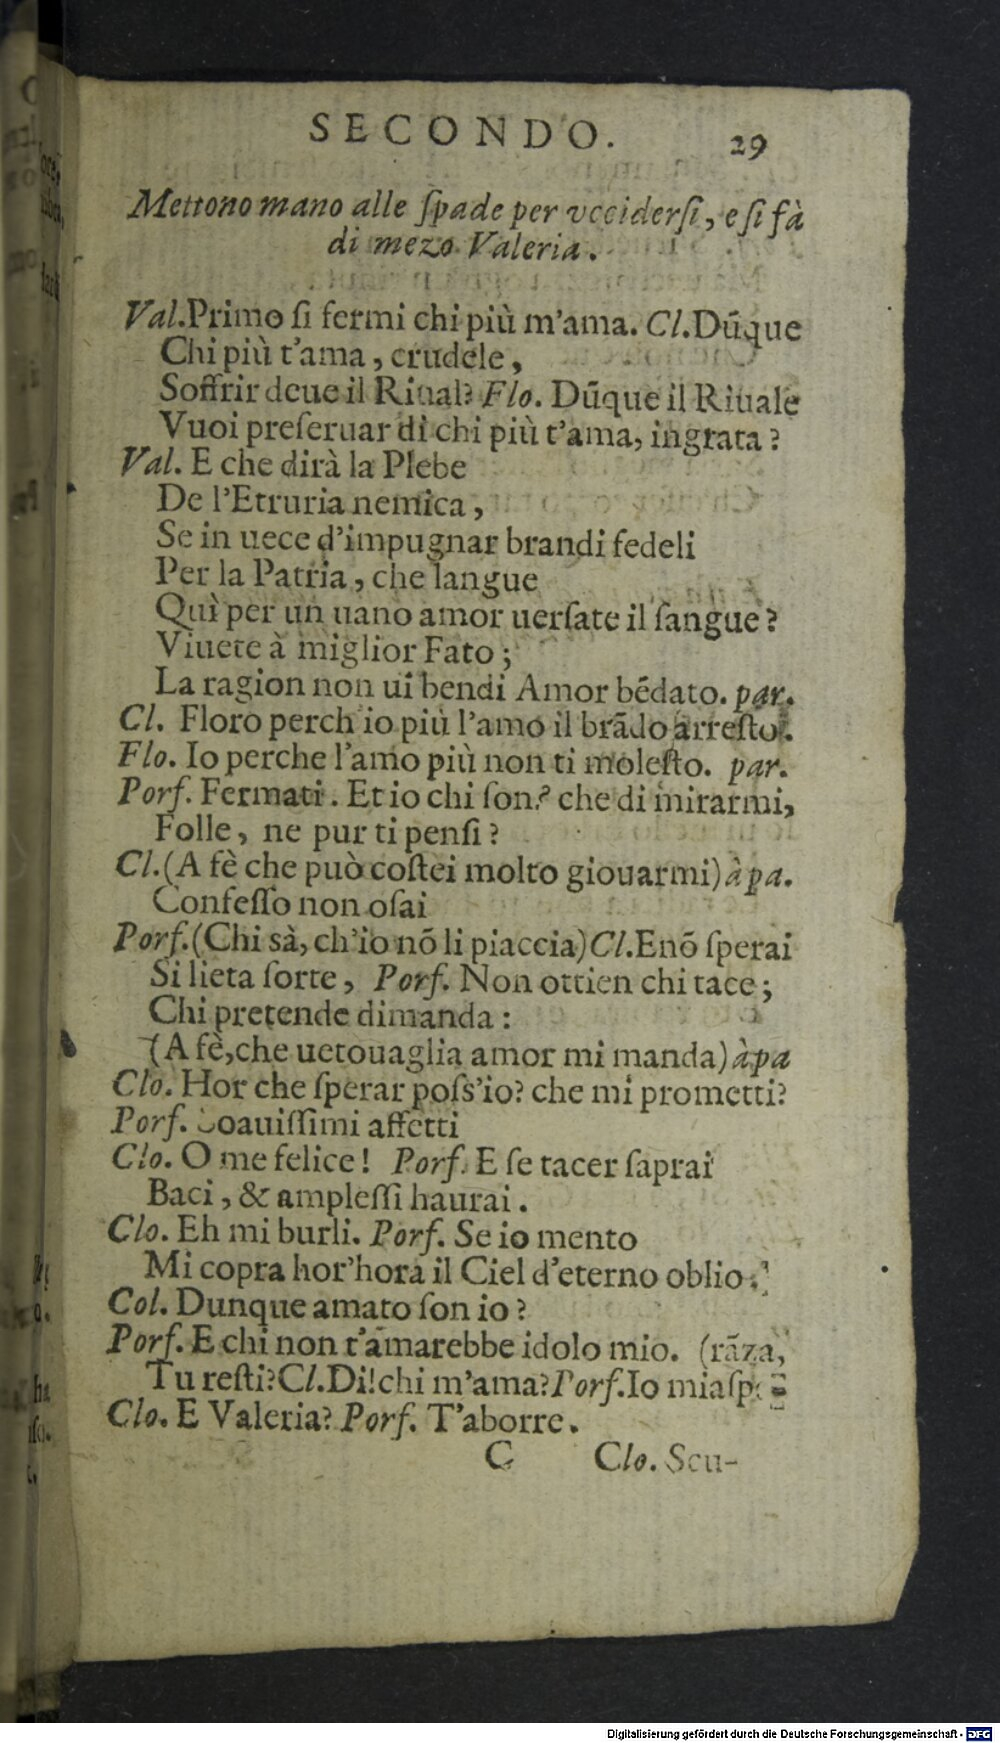 SECONDO. 29
Mettono mano alle ſpade per vcciderſi, e ſi fà
di mezo Valeria.
Val.Primo ſi fermi chi più m'ama. Cl.Dũque
Chi più t'ama, crudele,
Soffrir deue il Riual? Flo. Dũque il Riuale
Vuoi preſeruar di chi più t'ama, ingrata?
Val. E che dirà la Plebe
De l'Etruria nemica,
Se in uece d'impugnar brandi fedeli
Per la Patria, che langue
Quì per un uano amor uerſate il ſangue?
Viuete à miglior Fato;
La ragion non ui bendi Amor bẽdato. par.
Cl. Floro perch'io più l'amo il brãdo arreſto.
Flo. Io perche l'amo più non ti moleſto. par.
Porf. Fermati. Et io chi ſon? che di mirarmi,
Folle, ne pur ti penſi?
Cl.(A fè che può coſtei molto giouarmi) à pa.
Confeſſo non oſai
Porf.(Chi sà, ch'io nõ li piaccia) Cl.E nõ ſperai
Si lieta ſorte, Porf. Non ottien chi tace;
Chi pretende dimanda:
(A fè,che uetouaglia amor mi manda) à pa
Clo. Hor che ſperar poſs'io? che mi prometti?
Porf. Soauiſſimi affetti
Clo. O me felice! Porf. E ſe tacer ſaprai
Baci, & ampleſſi haurai.
Clo. Eh mi burli. Porf. Se io mento
Mi copra hor'hora il Ciel d'eterno oblio.
Col. Dunque amato ſon io?
Porf. E chi non t'amarebbe idolo mio. (rãza,
Tu reſti? Cl.Di! chi m'ama? Porf.Io mia ſpe
Clo. E Valeria? Porf. T'aborre.
C Clo. Scu-
Digitalisierung gefördert durch die Deutsche Forschungsgemeinschaft - DFG